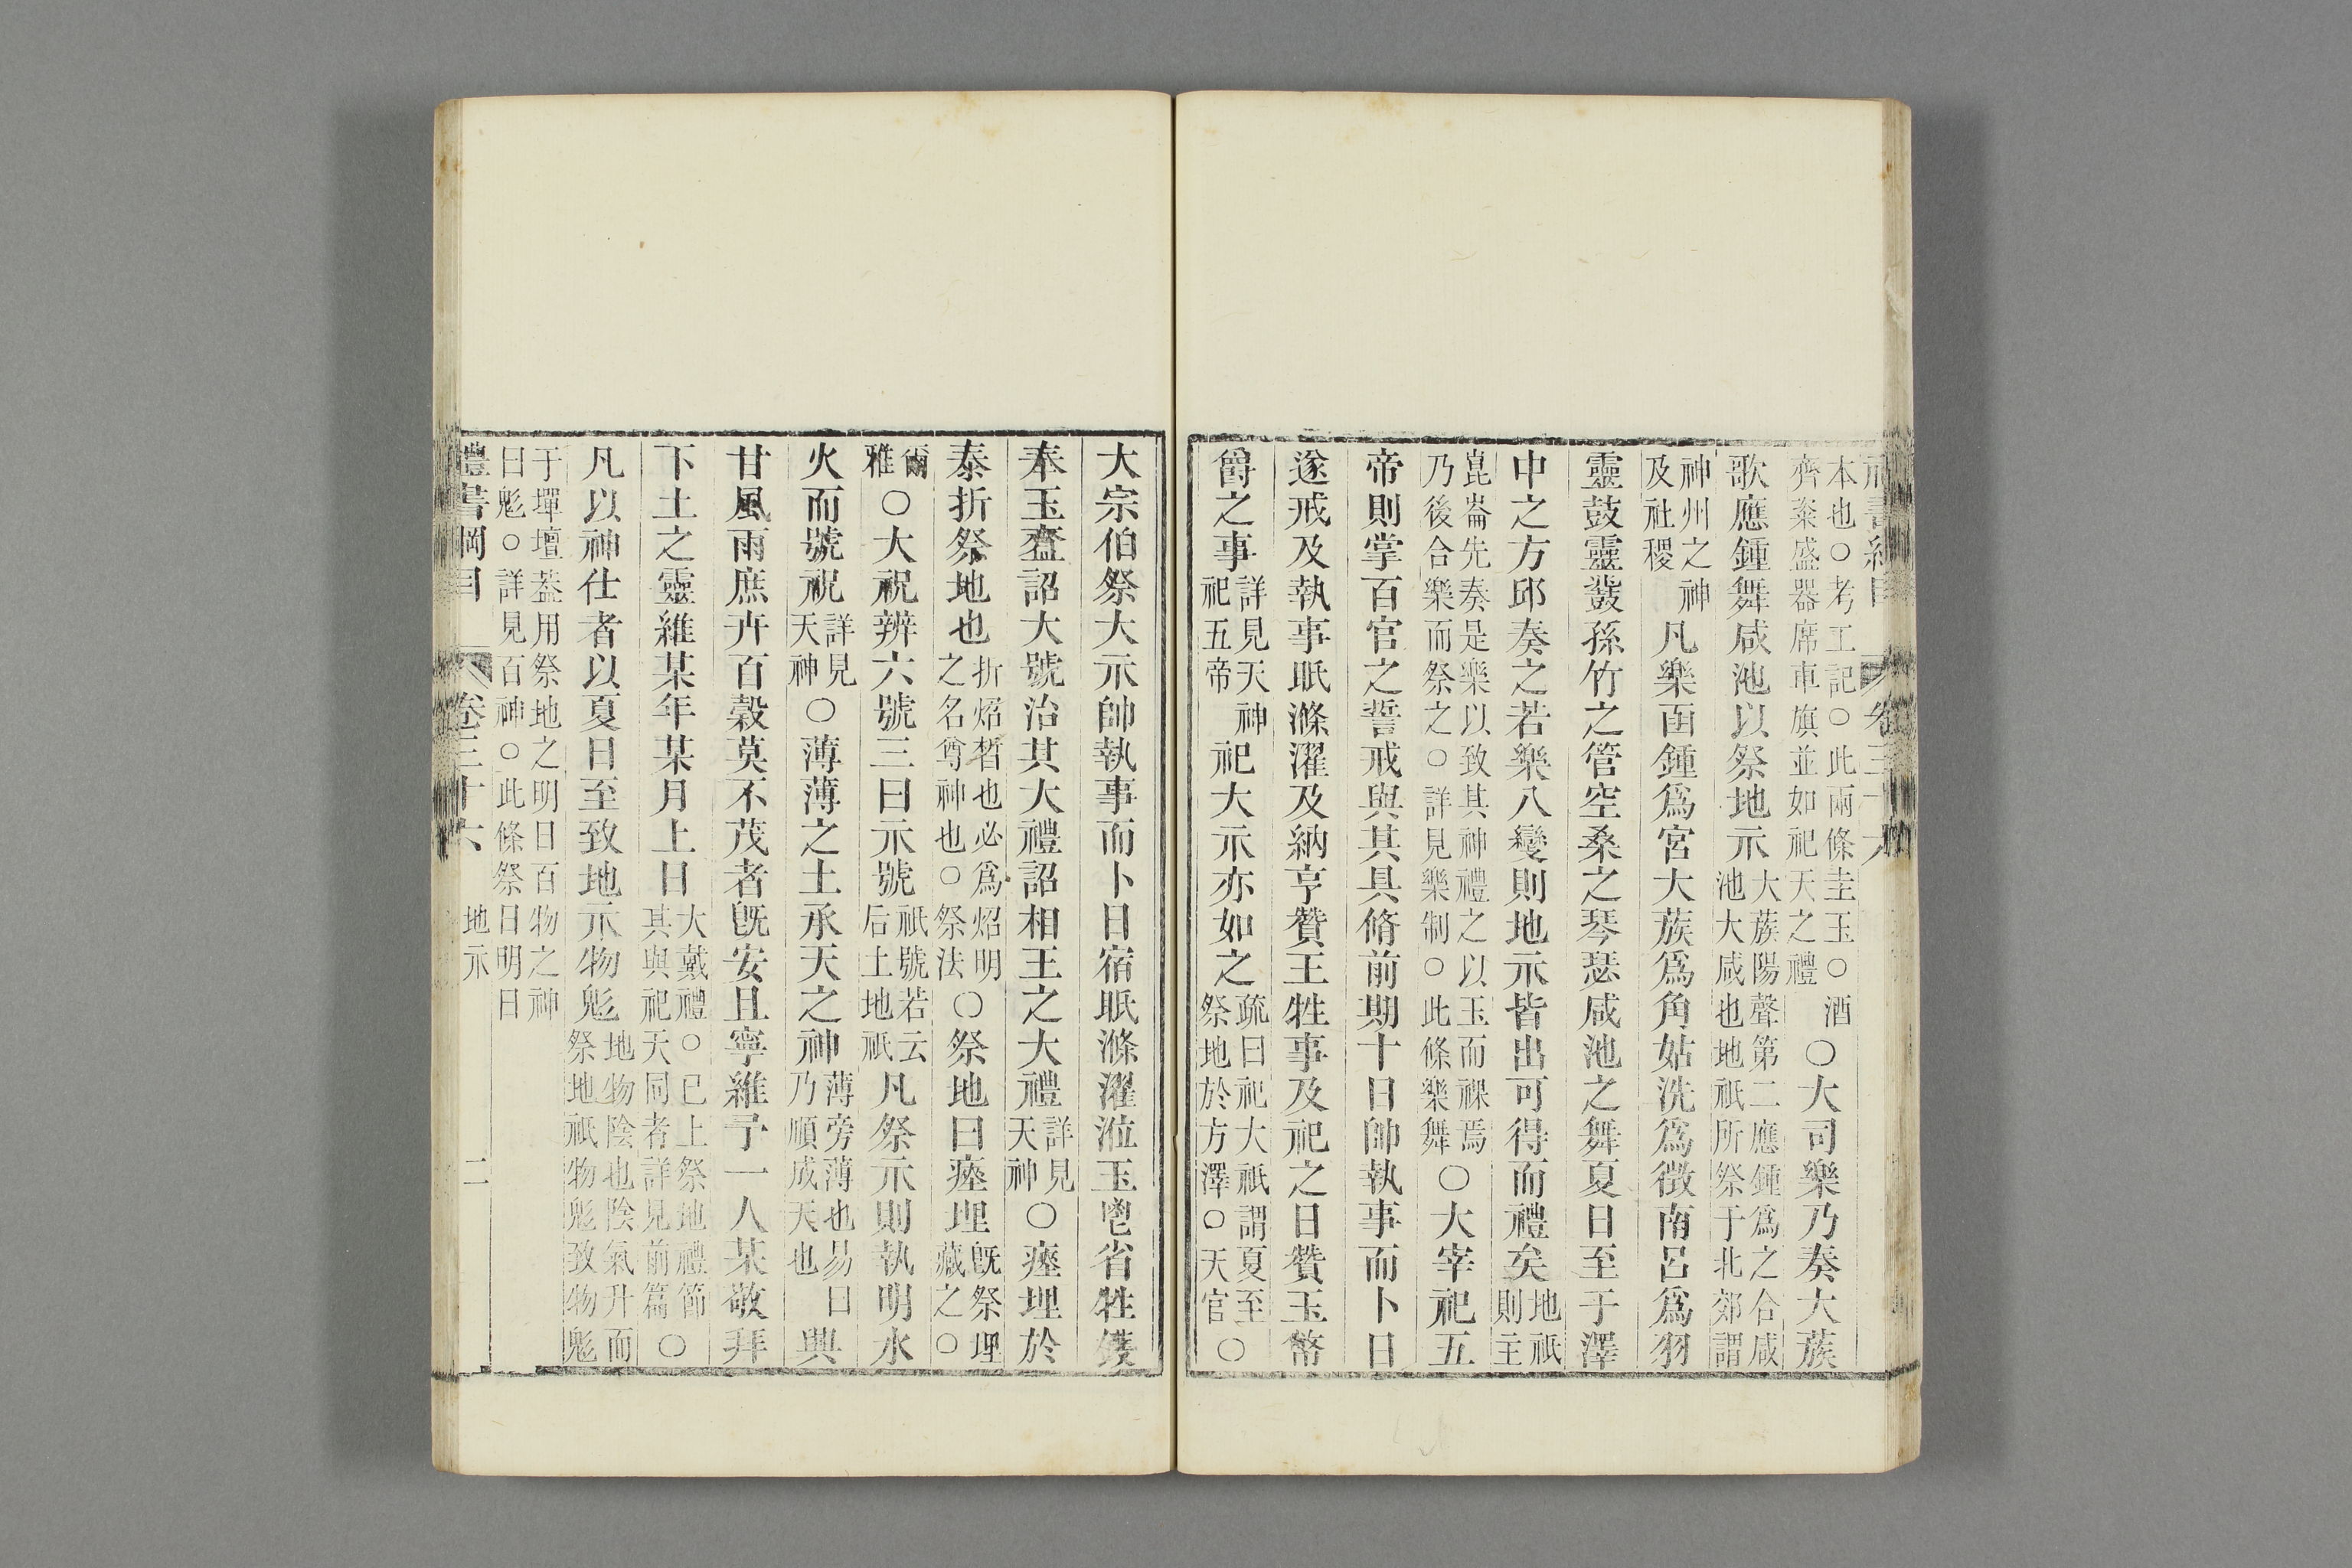 禮書綱目 卷三十六
本也○考工記○此兩條圭玉○酒
齊粢盛器席車旗並如祀天之禮
○大司樂乃奏大蔟
歌應鍾舞咸池以祭地示
大蔟陽聲第二應鍾為之合咸
池大咸也地祇所祭于北郊謂
神州之神
及社稷
凡樂函鍾爲宮大蔟爲角姑洗爲徵南呂爲羽
靈鼓靈鼗孫竹之管空桑之琴瑟咸池之舞夏日至于澤
中之方邱奏之若樂八變則地示皆出可得而禮矣
地祇
則主
崑崙先奏是樂以致其神禮之以玉而祼焉
乃後合樂而祭之○詳見樂制○此條樂舞
○大宰祀五
帝則掌百官之誓戒與其具脩前期十日帥執事而卜日
遂戒及執事眡滌濯及納亨贊王牲事及祀之日贊玉幣
爵之事
詳見天神
祀五帝
祀大示亦如之
疏曰祀大祇謂夏至
祭地於方澤○天官
○
大宗伯祭大示帥執事而卜日宿眡滌濯涖玉鬯省牲鑊
奉玉齍詔大號治其大禮詔相王之大禮
詳見
天神
○瘞埋於
泰折祭地也
折炤晢也必爲炤明
之名尊神也○祭法
○祭地曰瘞埋
旣祭埋
藏之○
爾
雅
○大祝辨六號三曰示號
祇號若云
后土地祇
凡祭示則執明水
火而號祝
詳見
天神
○薄薄之土承天之神
薄旁薄也易曰
乃順成天也
興
甘風雨庶卉百穀莫不茂者旣安且寧維予一人某敬拜
下土之靈維某年某月上日
大戴禮○已上祭地禮節
其與祀天同者詳見前篇
○
凡以神仕者以夏日至致地示物鬽
地物陰也陰氣升而
祭地祇物鬽致物鬽
于墠壇葢用祭地之明日百物之神
曰鬽○詳見百神○此條祭日明日
禮書綱目 卷三十六 地示 二